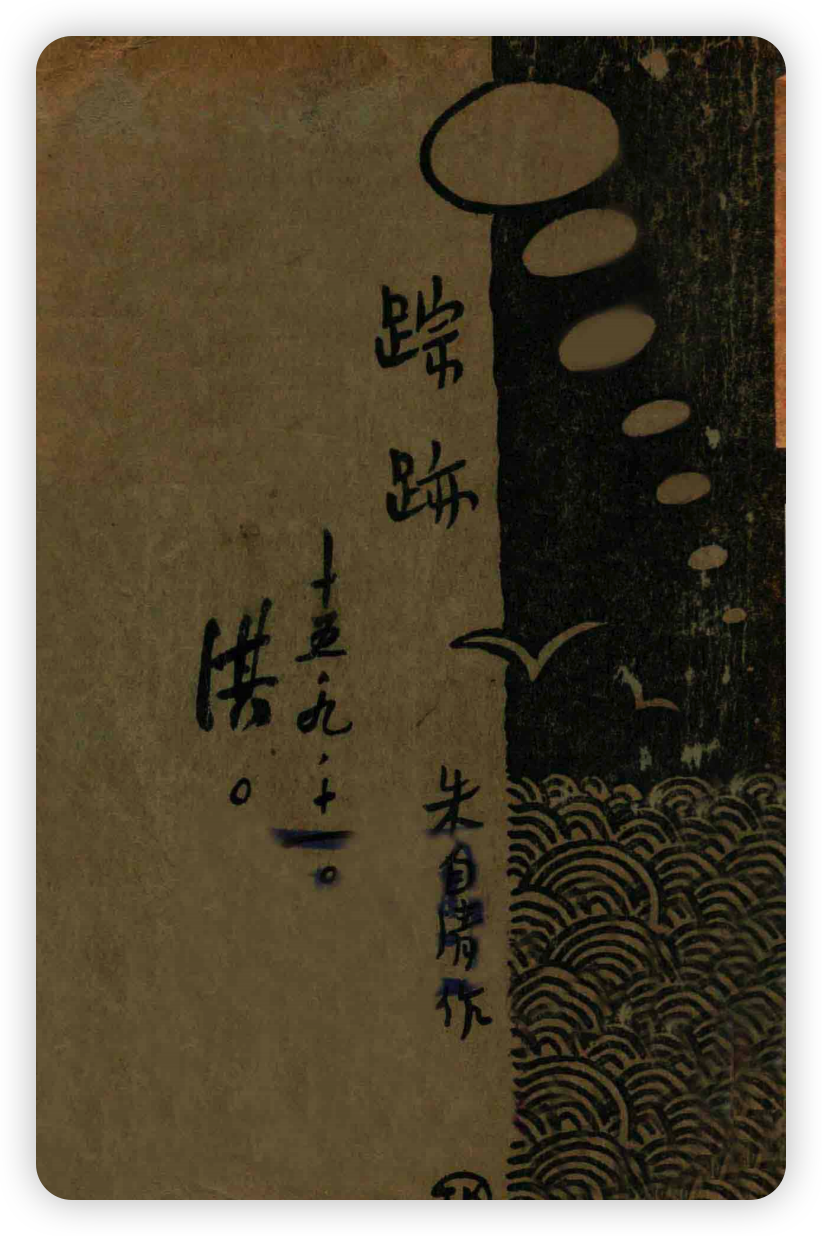 踪跡
朱自清作
十五、九、十一。
洪。